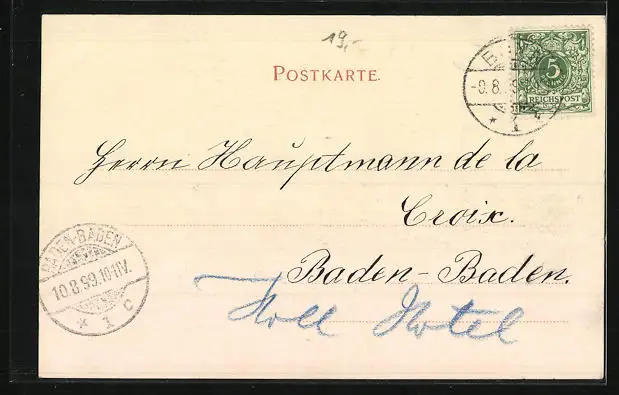 19,-
POSTKARTE.
-9.8.
5
REICHSPOST
Herrn Hauptmann de la
Croix.
BADEN-BADEN
10.8.99.10-11V.
* 1 c
Baden-Baden.
Hotel